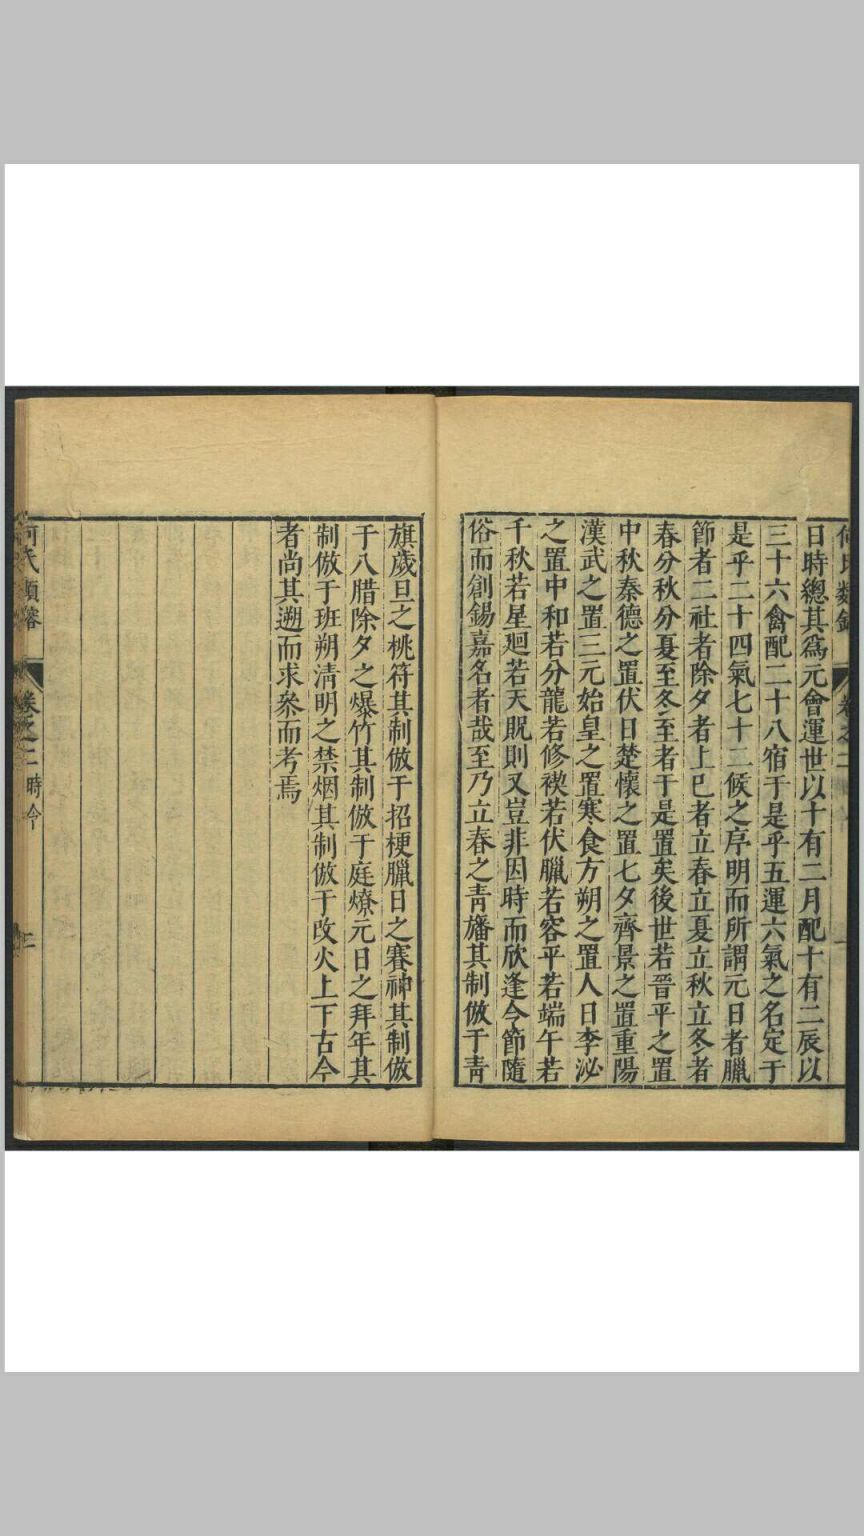 日時總其爲元會運世以十有二月配十有二辰以
三十六禽配二十八宿于是乎五運六氣之名定于
是乎二十四氣七十二候之序明而所謂元日者臘
節者二社者除夕者上巳者立春立夏立秋立冬者
春分秋分夏至冬至者于是置矣後世若晉平之置
中秋秦德之置伏日楚懷之置七夕齊景之置重陽
漢武之置三元始皇之置寒食方朔之置人日李泌
之置中和若分龍若修禊若伏臘若容平若端午若
千秋若星廻若天貺則又豈非因時而欣逢令節隨
俗而創錫嘉名者哉至乃立春之青旛其制倣于青
旗歲旦之桃符其制倣于招梗臘日之賽神其制倣
于八腊除夕之爆竹其制倣于庭燎元日之拜年其
制倣于班朔淸明之禁烟其制倣于改火上下古今
者尚其遡而求叅而考焉
何氏類鎔 卷之二 時令 二